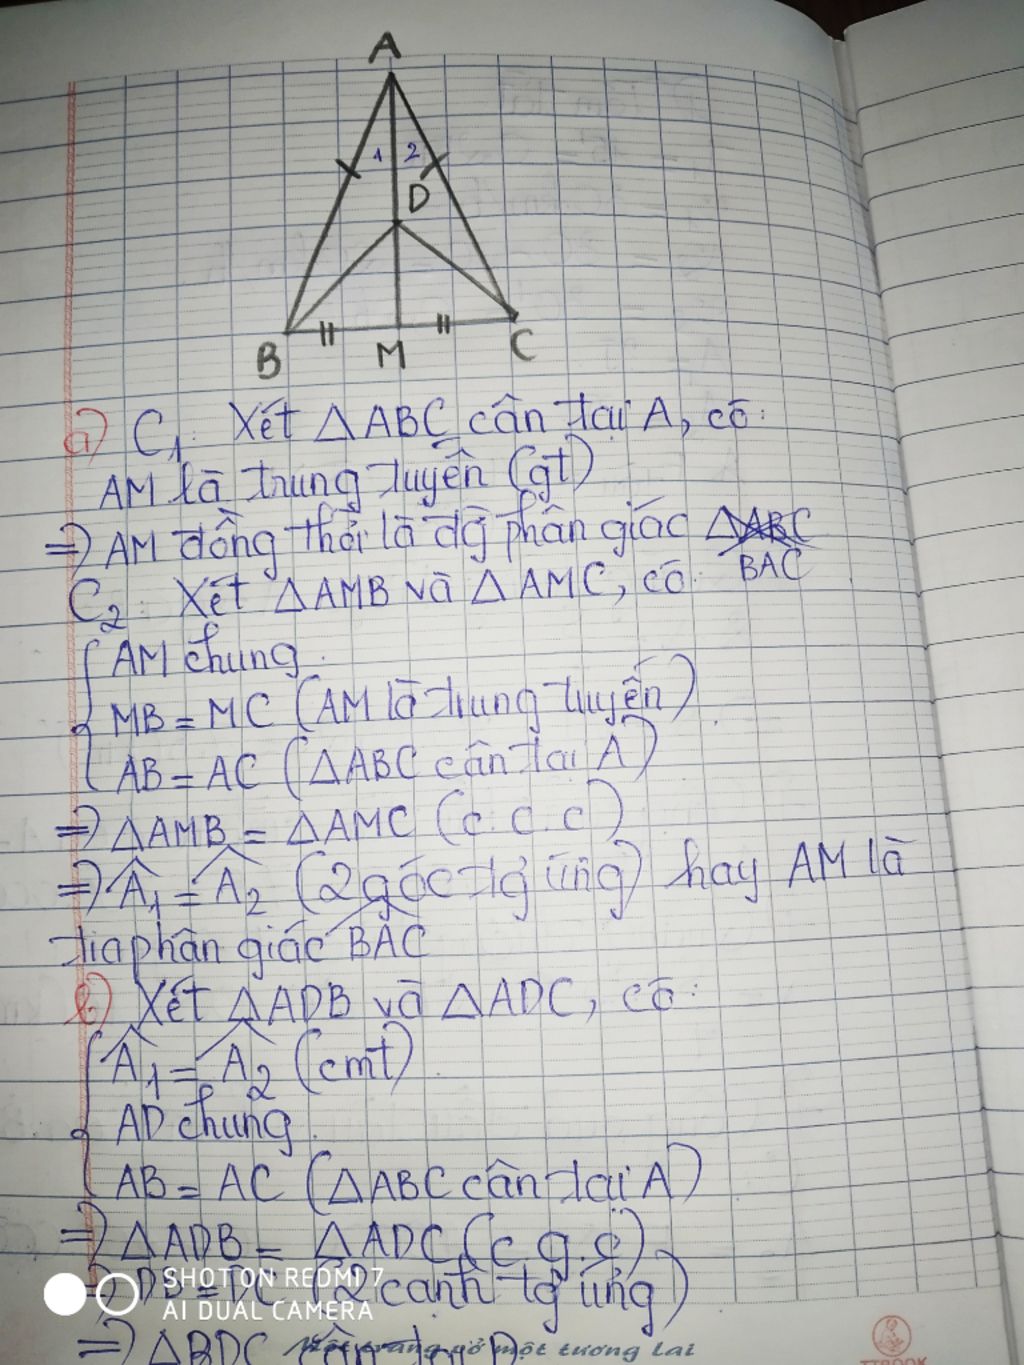 A
1 2
D
B M C
a) C₁: Xét △ABC cân tại A, có:
AM là trung tuyến (gt)
=> AM đồng thời là đg phân giác △ABC
BAC
C₂: Xét △AMB và △AMC, có:
AM chung.
MB = MC (AM là trung tuyến)
AB = AC (△ABC cân tại A)
=> △AMB = △AMC (c.c.c)
=> Â₁ = Â₂ (2 góc tg ứng) hay AM là
tia phân giác BAC
b) Xét △ADB và △ADC, có:
Â₁ = Â₂ (cmt)
AD chung.
AB = AC (△ABC cân tại A)
=> △ADB = △ADC (c.g.c)
=> DB = DC (2 cạnh tg ứng)
SHOT ON REDMI 7
AI DUAL CAMERA
=> △BDC cân tại D
Mỗi trang vở một tương lai